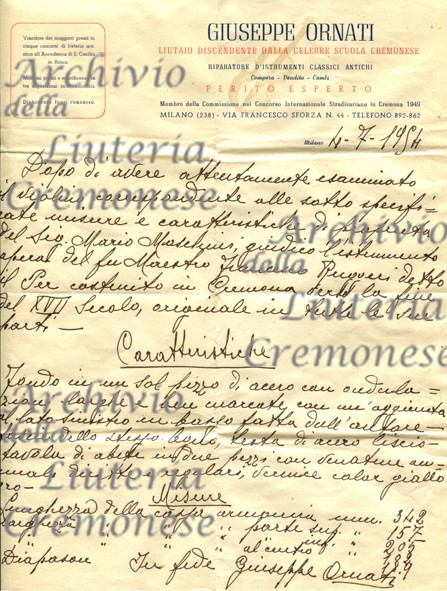 Vincitore dei maggiori premi in
cinque concorsi di liuteria
all'Accademia di S. Cecilia
in Roma.
GIUSEPPE ORNATI
LIUTAIO DISCENDENTE DALLA CELEBRE SCUOLA CREMONESE
RIPARATORE D'ISTRUMENTI CLASSICI ANTICHI
Compera - Vendita - Cambi
PERITO ESPERTO
Membro della Commissione nel Concorso Internazionale Stradivariano in Cremona 1949
MILANO (238) - VIA FRANCESCO SFORZA N. 44 - TELEFONO 892-862
Milano 4-7-1954
Archivio
della
Liuteria
Cremonese
Dopo di avere attentamente esaminato
il violino corrispondente alle sotto specifi-
cate misure e caratteristiche di proprietà
del Sig. Mario giudico l'istrumento
opera del fu Maestro Francesco Ruggeri detto
il Per costruito in Cremona verso la fine
del XVII Secolo, originale in tutte le sue
parti —
Archivio
della
Liuteria
Cremonese
Caratteristiche
Fondo in un sol pezzo di acero con ondula-
zioni larghe e ben marcate con un'aggiunta
al lato sinistro in basso fatta dall'autore
dello stesso, testa di acero liscio
tavola di abete in due pezzi con venature
diritte e regolari, vernice color giallo
oro —
Archivio
della
Liuteria
Cremonese
Misure
Lunghezza della cassa armonica mm. 342
Larghezza " " " parte sup. " 157
" " " " inf. " 203
" " " al centro "
Diapason
In fede Giuseppe Ornati